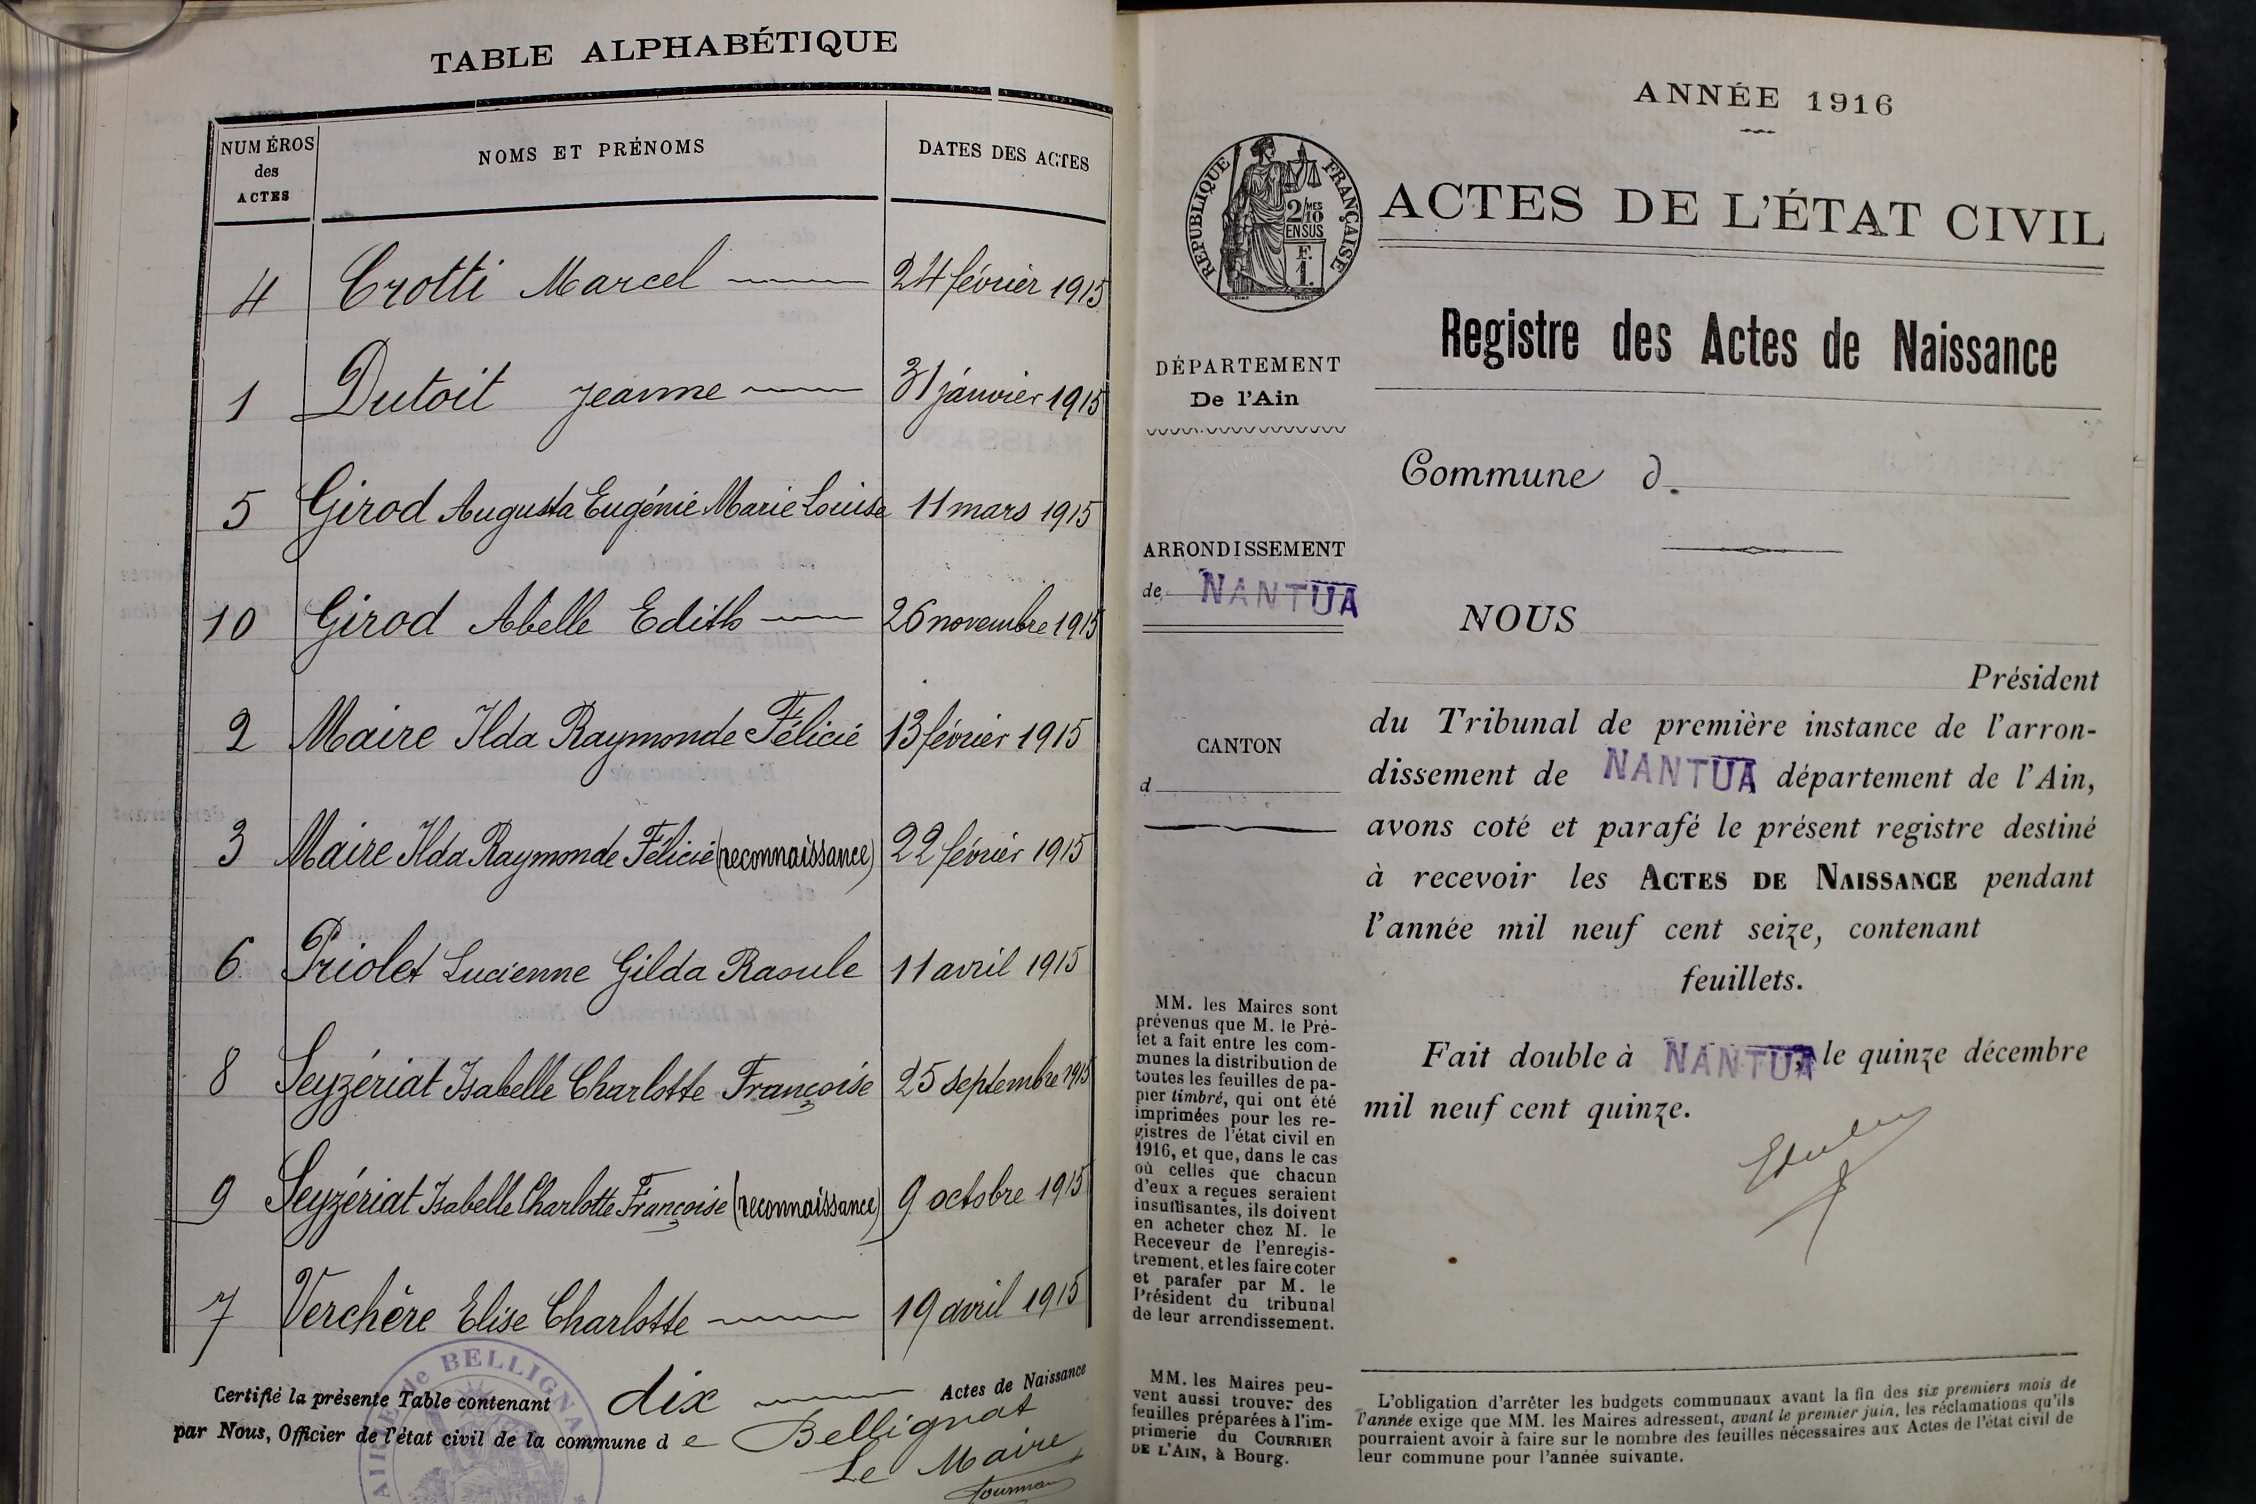 TABLE ALPHABÉTIQUE
NUMÉROS
des
ACTES
NOMS ET PRÉNOMS
DATES DES ACTES
4 Crotti Marcel 24 février 1915
1 Dutoit Jeanne 31 janvier 1915
5 Girod Augusta Eugénie Marie Louise 11 mars 1915
10 Girod Abelle Edith 26 novembre 1915
2 Maire Ilda Raymonde Félicie 13 février 1915
3 Maire Ilda Raymonde Félicie (reconnaissance) 22 février 1915
6 Priolet Lucienne Gilda Raoule 11 avril 1915
8 Seyzériat Isabelle Charlotte Françoise 25 septembre 1915
9 Seyzériat Isabelle Charlotte Françoise (reconnaissance) 9 octobre 1915
7 Verchère Elise Charlotte 19 avril 1915
Certifié la présente Table contenant dix Actes de Naissance
par Nous, Officier de l'état civil de la commune de Bellignat
Le Maire
de BELLIGNA
ANNÉE 1916
RÉPUBLIQUE FRANÇAISE
2/10 MES
EN SUS
F.
1.
ACTES DE L'ÉTAT CIVIL
Registre des Actes de Naissance
DÉPARTEMENT
De l'Ain
Commune d
ARRONDISSEMENT
de NANTUA
CANTON
d
NOUS
Président
du Tribunal de première instance de l'arron-
dissement de NANTUA département de l'Ain,
avons coté et parafé le présent registre destiné
à recevoir les ACTES DE NAISSANCE pendant
l'année mil neuf cent seize, contenant
feuillets.
Fait double à NANTUA, le quinze décembre
mil neuf cent quinze.
MM. les Maires sont
prévenus que M. le Pré-
fet a fait entre les com-
munes la distribution de
toutes les feuilles de pa-
pier timbré, qui ont été
imprimées pour les re-
gistres de l'état civil en
1916, et que, dans le cas
où celles que chacun
d'eux a reçues seraient
insuffisantes, ils doivent
en acheter chez M. le
Receveur de l'enregis-
trement, et les faire coter
et parafer par M. le
Président du tribunal
de leur arrondissement.
MM. les Maires peu-
vent aussi trouver des
feuilles préparées à l'im-
primerie du COURRIER
DE L'AIN, à Bourg.
L'obligation d'arrêter les budgets communaux avant la fin des six premiers mois de
l'année exige que MM. les Maires adressent, avant le premier juin, les réclamations qu'ils
pourraient avoir à faire sur le nombre des feuilles nécessaires aux Actes de l'état civil de
leur commune pour l'année suivante.